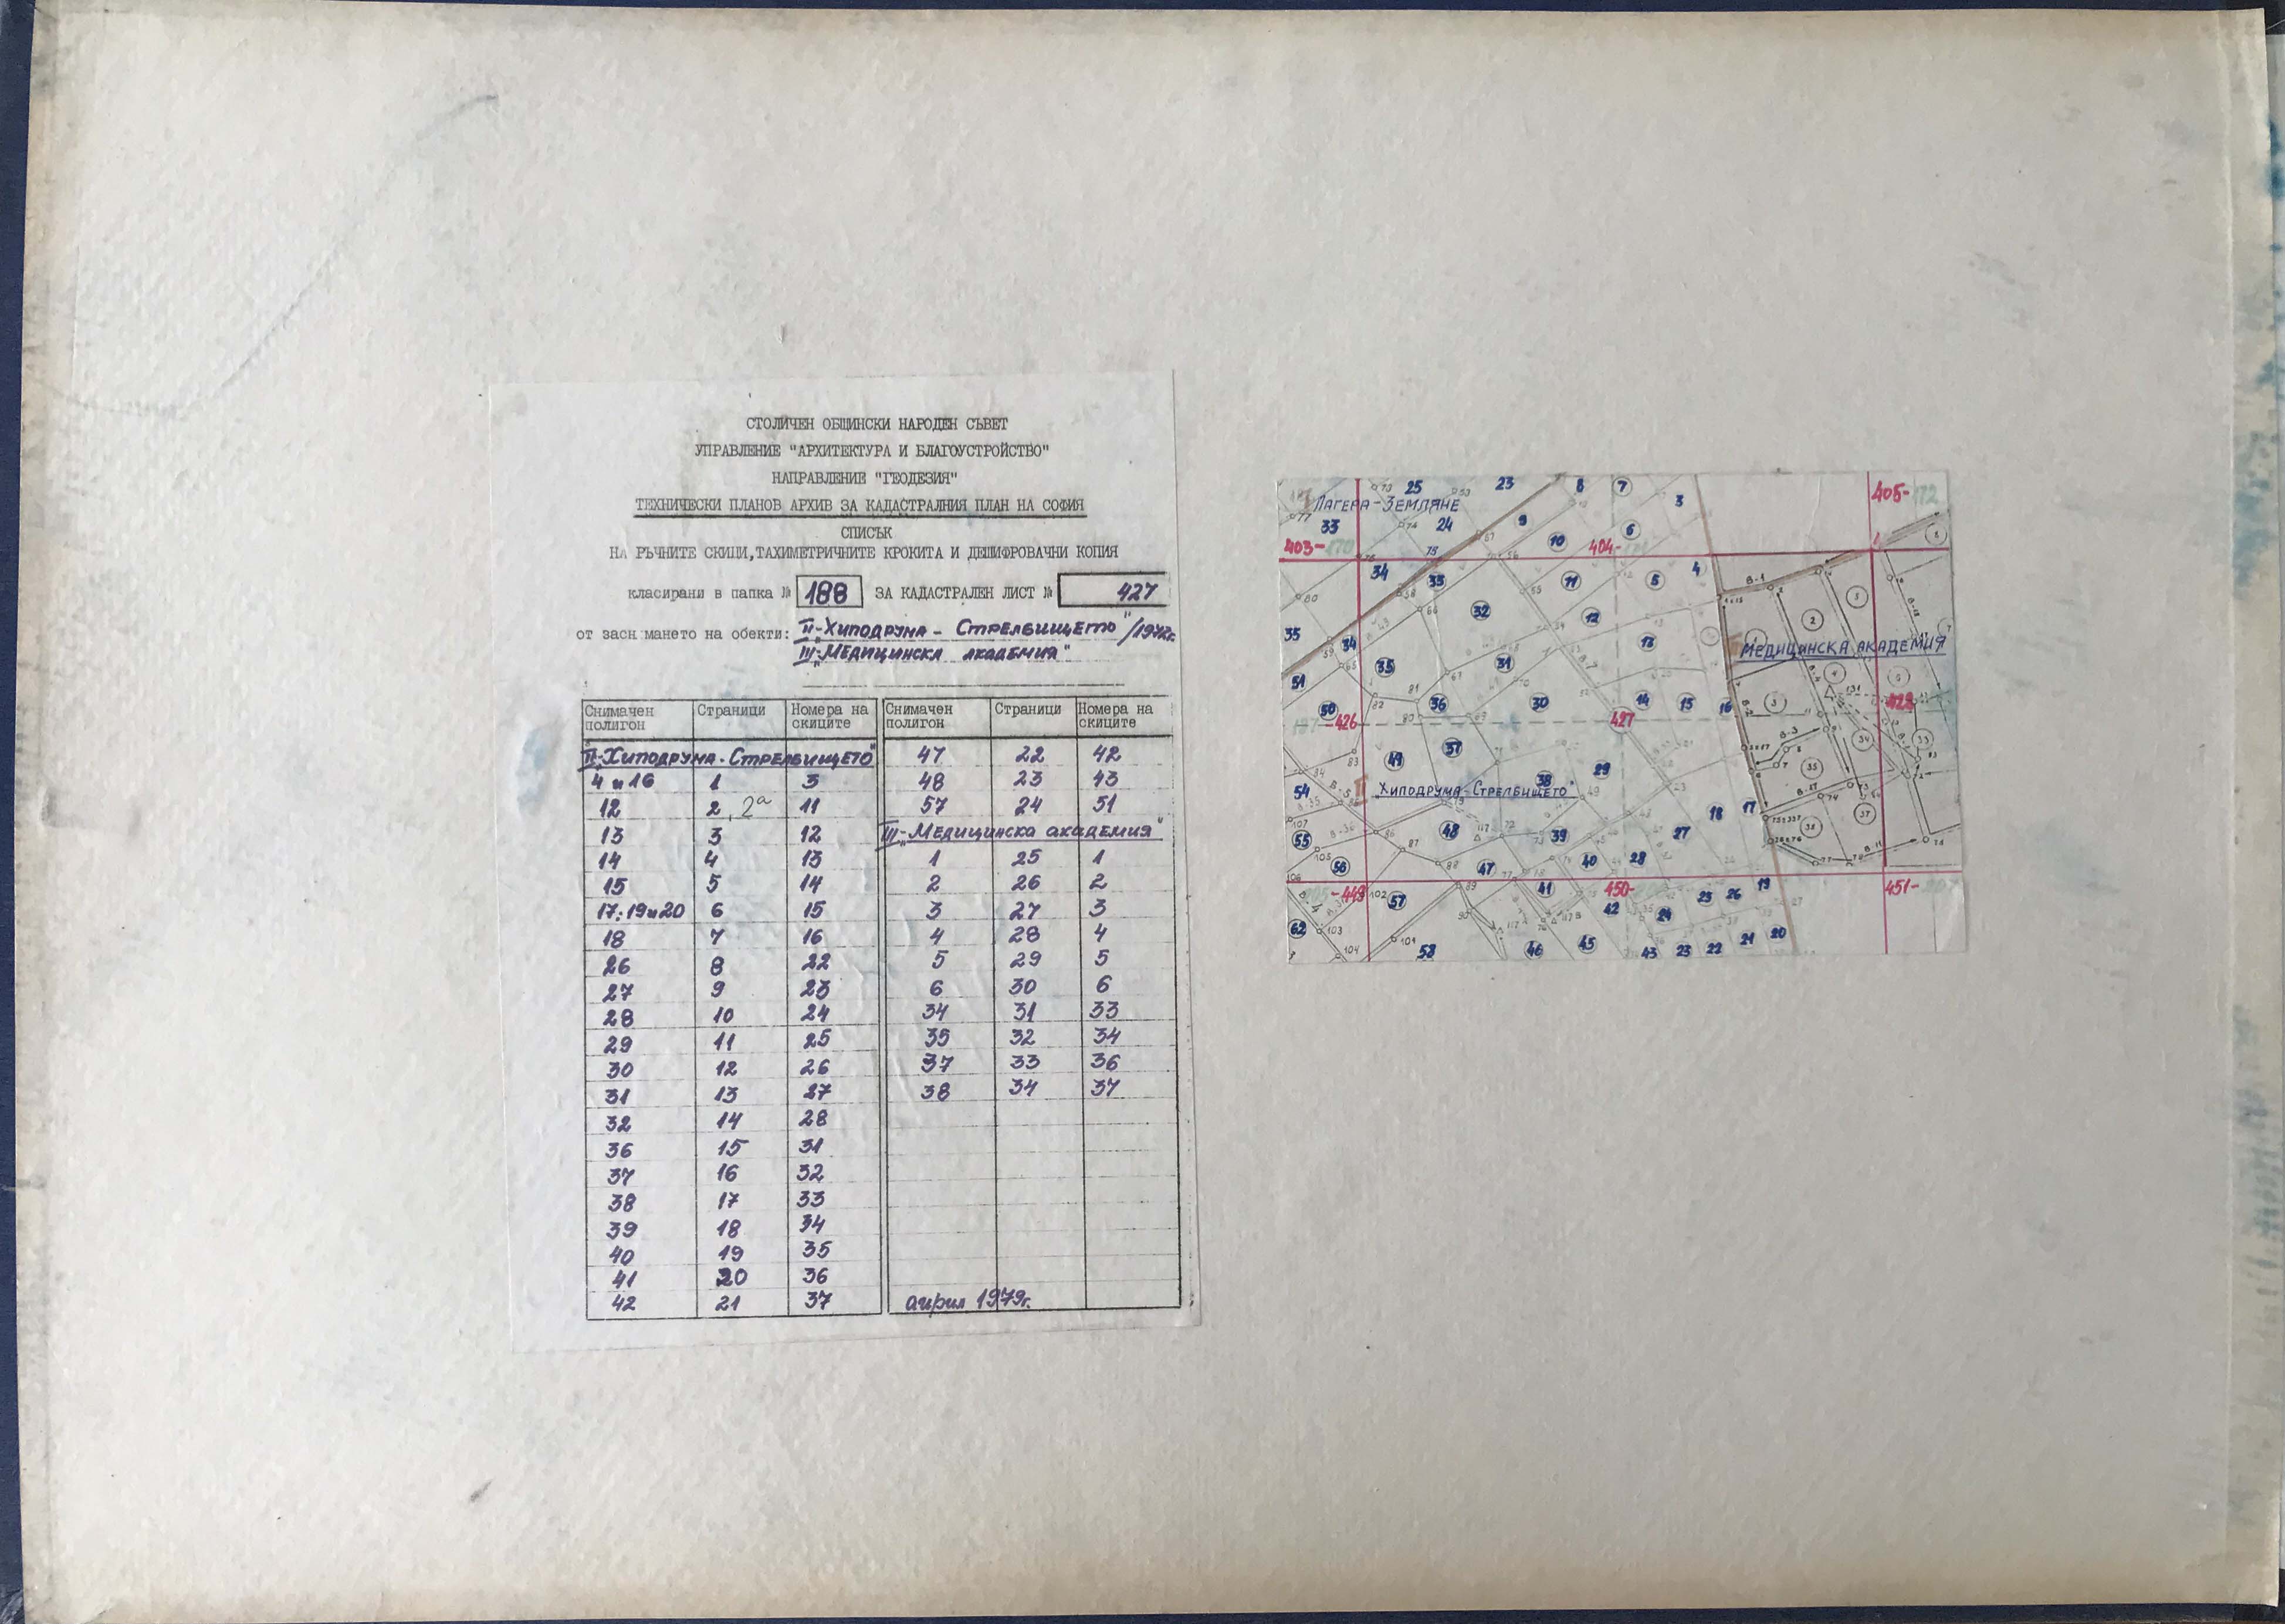 СТОЛИЧЕН ОБЩИНСКИ НАРОДЕН СЪВЕТ
УПРАВЛЕНИЕ "АРХИТЕКТУРА И БЛАГОУСТРОЙСТВО"
НАПРАВЛЕНИЕ "ГЕОДЕЗИЯ"
ТЕХНИЧЕСКИ ПЛАНОВ АРХИВ ЗА КАДАСТРАЛНИЯ ПЛАН НА СОФИЯ
СПИСЪК
НА РЪЧНИТЕ СКИЦИ, ТАХИМЕТРИЧНИТЕ КРОКИТА И ДЕШИФРОВАЧНИ КОПИЯ
класирани в папка № 188 ЗА КАДАСТРАЛЕН ЛИСТ № 427
от засн мането на обекти: II-"Хиподрума - Стрелбището"/1972г.
III-"Медицинска академия"
Снимачен полигон Страници Номера на скиците Снимачен полигон Страници Номера на скиците
II-"Хиподрума-Стрелбището" 47 22 42
4 и 16 1 3 48 23 43
12 2, 2а 11 57 24 51
13 3 12 III-"Медицинска академия"
14 4 13 1 25 1
15 5 14 2 26 2
17; 19 и 20 6 15 3 27 3
18 7 16 4 28 4
26 8 22 5 29 5
27 9 23 6 30 6
28 10 24 34 31 33
29 11 25 35 32 34
30 12 26 37 33 36
31 13 27 38 34 37
32 14 28
36 15 31
37 16 32
38 17 33
39 18 34
40 19 35
41 20 36
42 21 37 април 1979г.
25 23 8 7 3 405-
Лагера-Земляне
33 24 9 6
403- 10 404-
34 33 11 5 4 В-1
32 12 2 3
35 34 13
Медицинска академия
35 31
51 4
50 36 30 14 15 16 3
-426 427 428
49 37 38 29 34 33
54 Хиподрума-Стрелбището" 35
18 17
55 48 39 27 38 37
56 47 40 28
-449 41 450- 19 451-
57 42 24 25 26
62 58 46 45 43 23 22 21 20